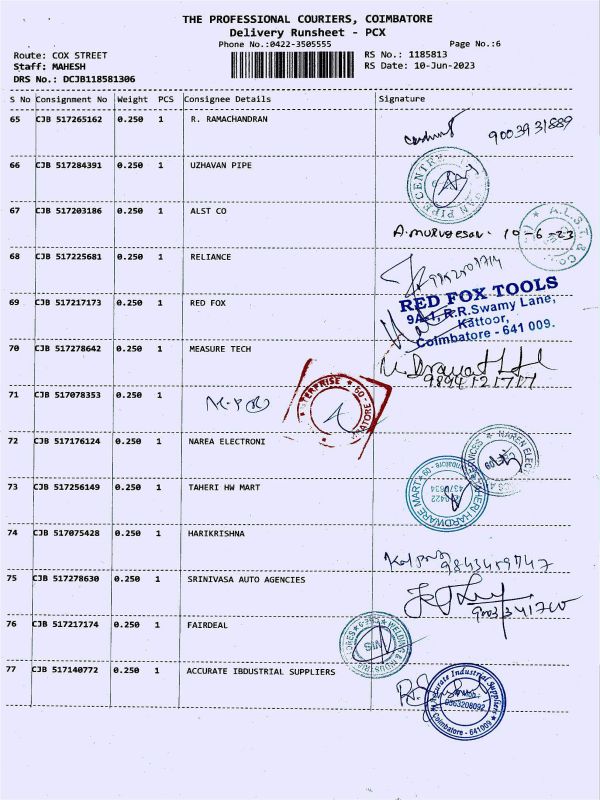 THE PROFESSIONAL COURIERS, COIMBATORE
Delivery Runsheet - PCX
Phone No.:0422-3505555 Page No.:6
Route: COX STREET RS No.: 1185813
Staff: MAHESH RS Date: 10-Jun-2023
DRS No.: DCJB118581306
S No Consignment No Weight PCS Consignee Details Signature
65 CJB 517265162 0.250 1 R. RAMACHANDRAN
9003931889
66 CJB 517284391 0.250 1 UZHAVAN PIPE
PIPE CENTRE
67 CJB 517203186 0.250 1 ALST CO
A.L.S.T. & Co.
A.murugesan. 10-6-23
68 CJB 517225681 0.250 1 RELIANCE
69 CJB 517217173 0.250 1 RED FOX
RED FOX TOOLS
9A-1, R.R.Swamy Lane,
Kattoor,
Coimbatore - 641 009.
70 CJB 517278642 0.250 1 MEASURE TECH
71 CJB 517078353 0.250 1
72 CJB 517176124 0.250 1 NAREA ELECTRONI
73 CJB 517256149 0.250 1 TAHERI HW MART
HARDWARE MART
74 CJB 517075428 0.250 1 HARIKRISHNA
75 CJB 517278630 0.250 1 SRINIVASA AUTO AGENCIES
76 CJB 517217174 0.250 1 FAIRDEAL
77 CJB 517140772 0.250 1 ACCURATE IBDUSTRIAL SUPPLIERS
Accurate Industrial Suppliers
Coimbatore - 641009